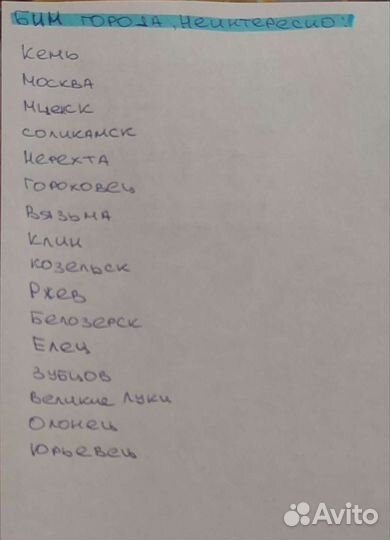 БИМ ГОРОДА, НЕИНТЕРЕСНО:
КЕМЬ
МОСКВА
МЦЕНСК
СОЛИКАМСК
НЕРЕХТА
ГОРОХОВЕЦ
ВЯЗЬМА
КЛИН
КОЗЕЛЬСК
РЖЕВ
БЕЛОЗЕРСК
ЕЛЕЦ
ЗУБЦОВ
ВЕЛИКИЕ ЛУКИ
ОЛОНЕЦ
ЮРЬЕВЕЦ
Avito